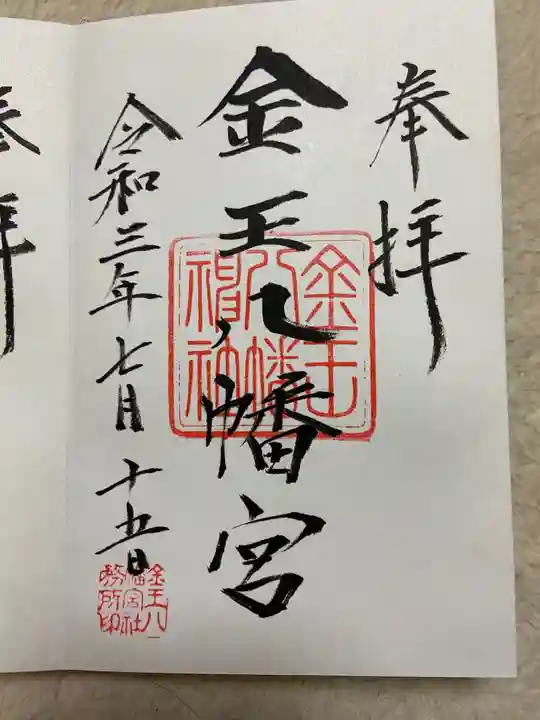 奉拝
金王八幡宮
金王
八幡
神社
令和三年七月十五日
金王八
幡宮社
務所印
奉拝